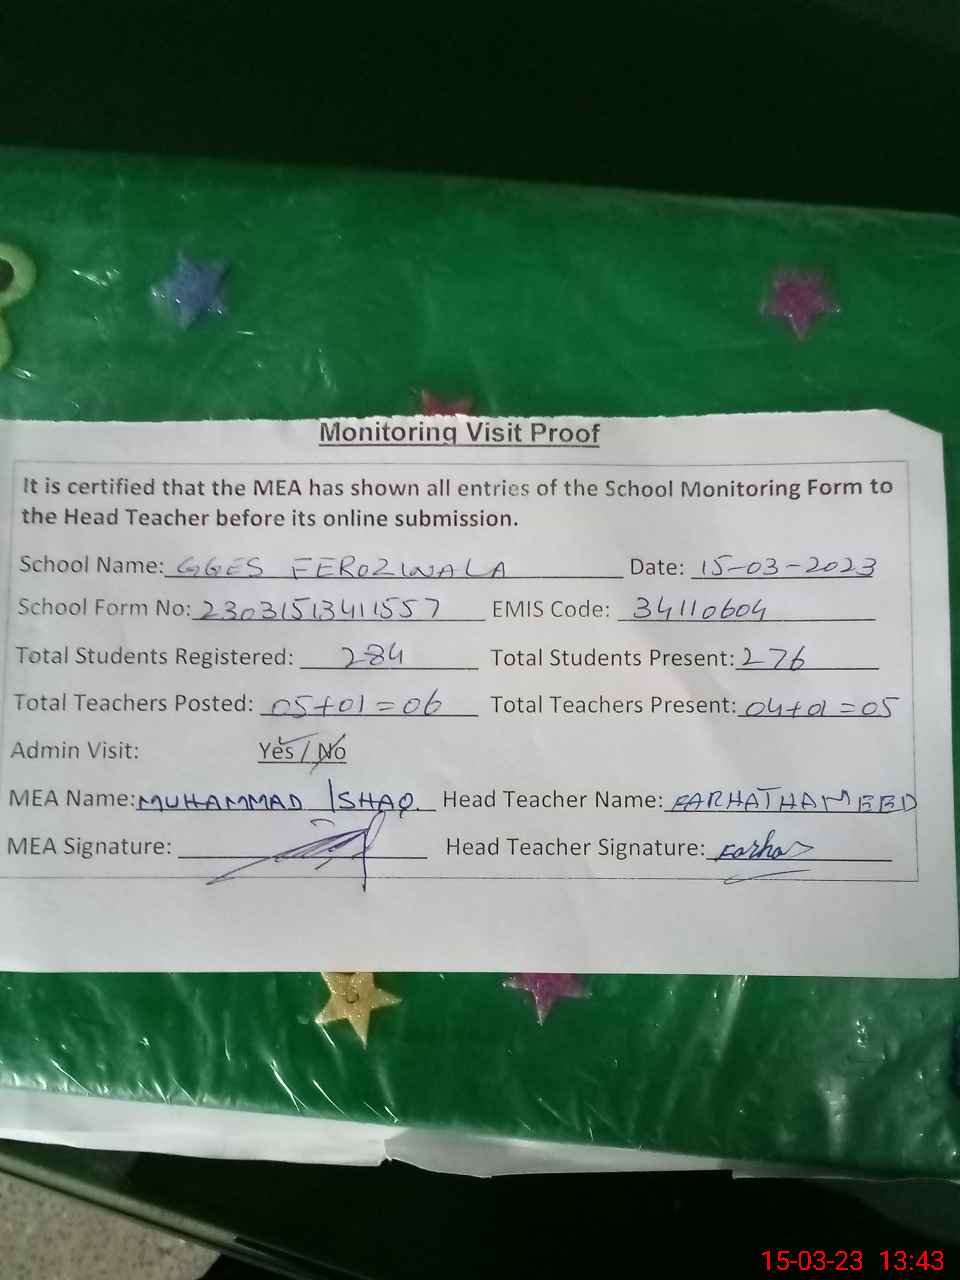 Monitoring Visit Proof
It is certified that the MEA has shown all entries of the School Monitoring Form to
the Head Teacher before its online submission.
School Name: GGES FEROZWALA Date: 15-03-2023
School Form No: 23031513411557 EMIS Code: 34110604
Total Students Registered: 284 Total Students Present: 276
Total Teachers Posted: 05+01=06 Total Teachers Present: 04+01=05
Admin Visit: Yes / No
MEA Name: MUHAMMAD ISHAQ Head Teacher Name: FARHAT HAMEED
MEA Signature: Head Teacher Signature: Farhat
15-03-23 13:43